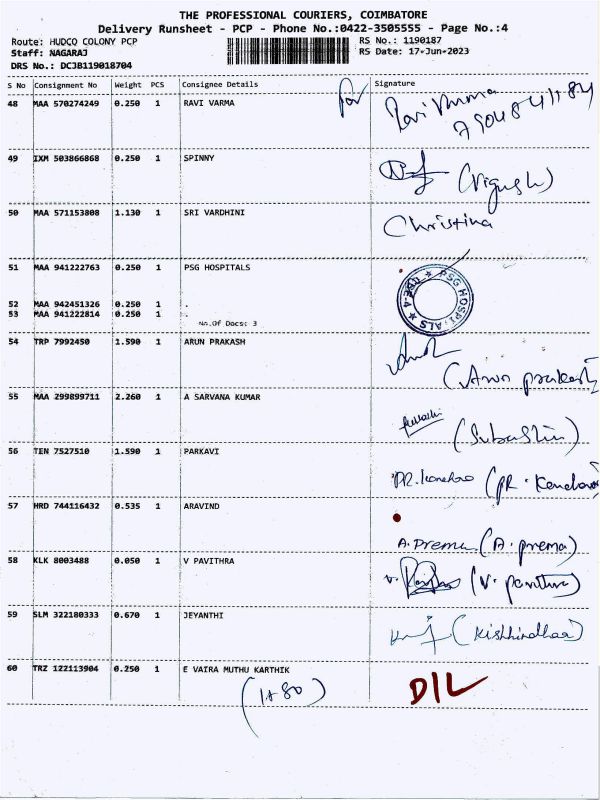 THE PROFESSIONAL COURIERS, COIMBATORE
Delivery Runsheet - PCP - Phone No.:0422-3505555 - Page No.:4
Route: HUDCO COLONY PCP RS No.: 1190187
Staff: NAGARAJ RS Date: 17-Jun-2023
DRS No.: DCJB119018704
S No Consignment No Weight PCS Consignee Details Signature
48 MAA 570274249 0.250 1 RAVI VARMA for Ravi Varma
7904841184
49 IXM 503866868 0.250 1 SPINNY (Vignesh)
50 MAA 571153808 1.130 1 SRI VARDHINI Christina
51 MAA 941222763 0.250 1 PSG HOSPITALS PSG HOSPITALS
52 MAA 942451326 0.250 1 .
53 MAA 941222814 0.250 1 .
No.Of Docs: 3
54 TRP 7992450 1.590 1 ARUN PRAKASH
(Arun prakash)
55 MAA 299899711 2.260 1 A SARVANA KUMAR
(Subashini)
56 TEN 7527510 1.590 1 PARKAVI
PR.
57 HRD 744116432 0.535 1 ARAVIND
A. Prema (A. prema)
58 KLK 8003488 0.050 1 V PAVITHRA
(V. pavithra)
59 SLM 322180333 0.670 1 JEYANTHI
60 TRZ 122113904 0.250 1 E VAIRA MUTHU KARTHIK D/L